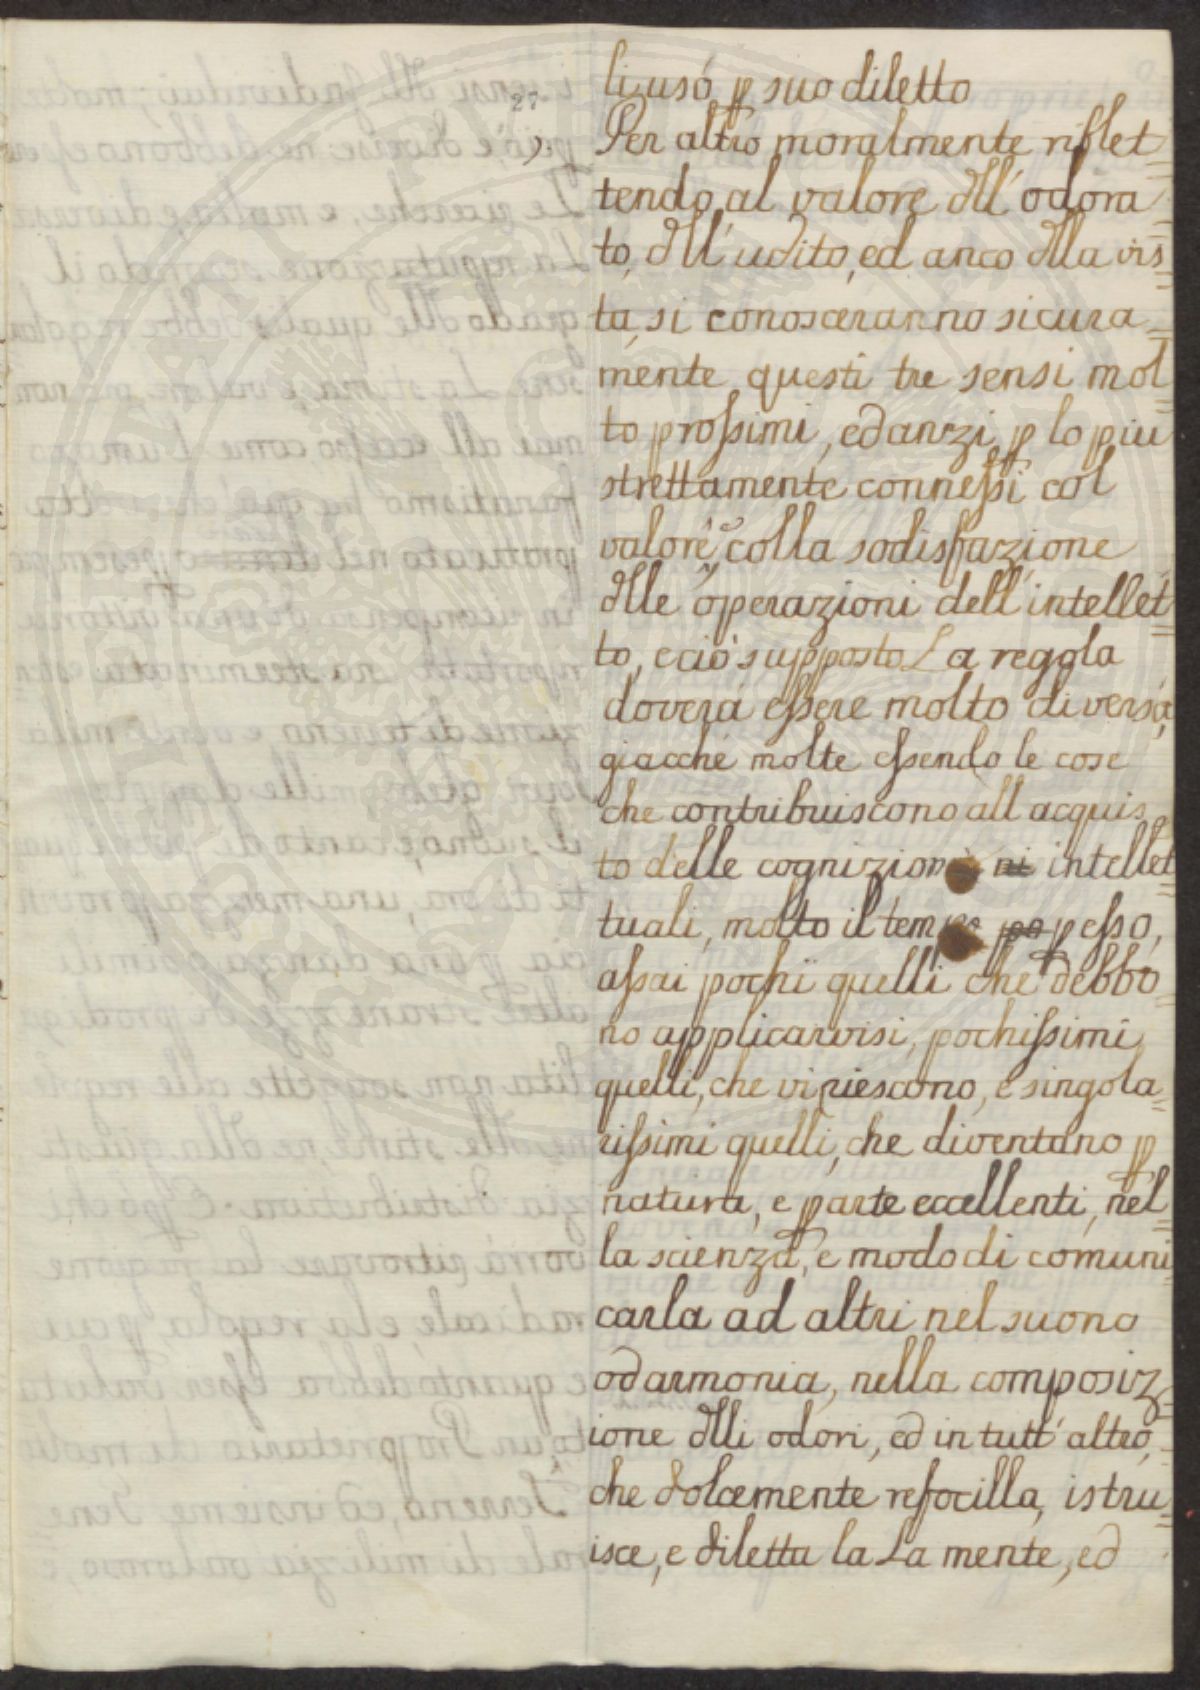 27
li, usó ꝑ suo diletto
Per altro moralmente riflet=
tendo al valore dll' odora=
to, dll' udito, ed anco dlla vis=
ta, si conosceranno sicura=
mente questi tre sensi mol=
to proſsimi, ed anzi ꝑ lo piu
strettamente conneſsi col
valore, e colla sodisfazione
dlle operazioni dell' intellet=
to, e ció supposto La regola
doverá eſsere molto diversa,
giacché molte eſsendo le cose
che contribuiscono all acquis=
to delle cognizioni ni intellet=
tuali, molto il tempo po ꝑ eſso,
aſsai pochi quelli che debbo=
no applicarvisi, pochiſsimi
quelli, che vi riescono, e singola=
riſsimi quelli, che diventano ꝑ
natura, e ꝑ arte eccellenti, nel=
la scienza, e modo di comuni=
carla ad altri nel suono
od armonia, nella composiz=
ione dlli odori, ed in tutt' altro,
che dolcemente refocilla, istru=
isce, e diletta la La mente, ed